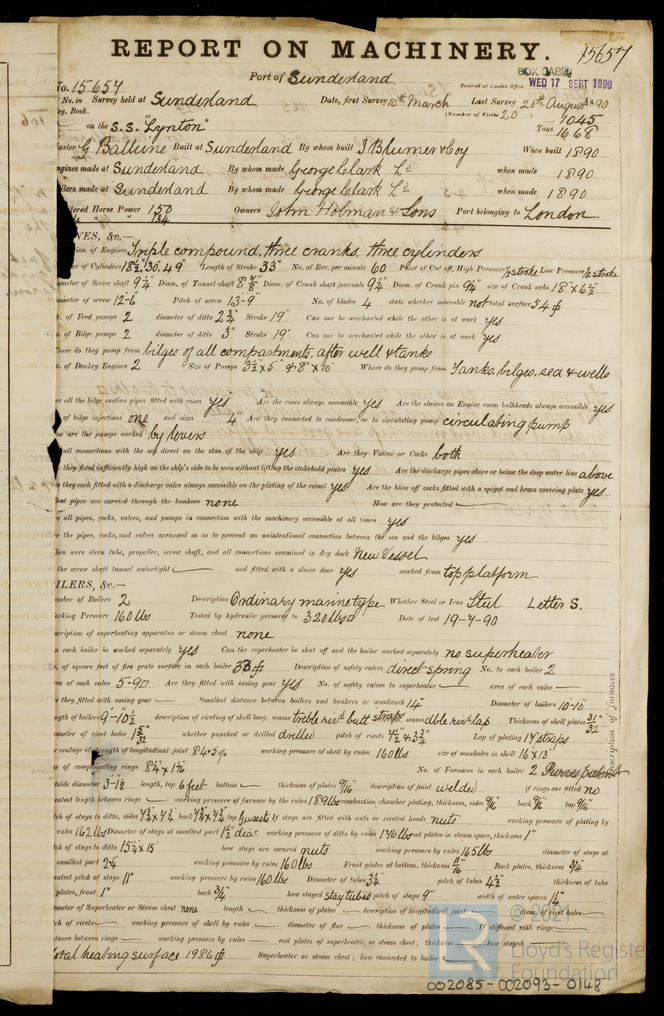 REPORT ON MACHINERY. 15657
BOX CASE
Port of Sunderland
Received at London Office WED 17 SEPT 1890
No. 15657
No. in Survey held at Sunderland Date, first Survey 10th March Last Survey 28th August 1890
Reg. Book. (Number of Visits 20
on the S.S. "Lynton" Tons 1045 1668
Master G Ballline Built at Sunderland By whom built J Blumer & Coy When built 1890
Engines made at Sunderland By whom made George Clark Ld when made 1890
Boilers made at Sunderland By whom made George Clark Ld when made 1890
Registered Horse Power 150 Owners John Holman & Sons Port belonging to London
134
ENGINES, &c.—
Description of Engines Triple compound, three cranks, three cylinders
Diameter of Cylinders 18½" 30" 49" Length of Stroke 33" No. of Rev. per minute 60 Point of Cut off, High Pressure ½ stroke Low Pressure ½ stroke
Diameter of Screw shaft 9¼ Diam. of Tunnel shaft Diam. of Crank shaft journals 9¼" Diam. of Crank pin 9¼" size of Crank webs 18" x 6½"
Diameter of screw 12-6 Pitch of screw 13-9" No. of blades 4 state whether moveable not total surface 54 ft
No. of Feed pumps 2 diameter of ditto 2¾" Stroke 19" Can one be overhauled while the other is at work yes
No. of Bilge pumps 2 diameter of ditto 3" Stroke 19" Can one be overhauled while the other is at work yes
Where do they pump from bilges of all compartments, after well & tanks
No. of Donkey Engines 2 Size of Pumps 3½ x 5" & 8" x 10" Where do they pump from Tanks, bilges, sea & wells
Are all the bilge suction pipes fitted with roses yes Are the roses always accessible yes Are the sluices on Engine room bulkheads always accessible yes
No. of bilge injections one and sizes 4" Are they connected to condenser, or to circulating pump circulating pump
How are the pumps worked by levers
Are all connections with the sea direct on the skin of the ship yes Are they Valves or Cocks both
Are they fixed sufficiently high on the ship's side to be seen without lifting the stokehold plates yes Are the discharge pipes above or below the deep water line above
Are they each fitted with a discharge valve always accessible on the plating of the vessel yes Are the blow off cocks fitted with a spigot and brass covering plate yes
What pipes are carried through the bunkers none How are they protected —
Are all pipes, cocks, valves, and pumps in connection with the machinery accessible at all times yes
Are the pipes, cocks, and valves arranged so as to prevent an unintentional connection between the sea and the bilges yes
When were stern tube, propeller, screw shaft, and all connections examined in dry dock New Vessel
Is the screw shaft tunnel watertight — and fitted with a sluice door yes worked from top platform
BOILERS, &c.—
Number of Boilers 2 Description Ordinary marine type Whether Steel or Iron Steel Letter S.
Working Pressure 160 lbs Tested by hydraulic pressure to 320 lbs Date of test 19-7-90
Description of superheating apparatus or steam chest none
Can each boiler be worked separately yes Can the superheater be shut off and the boiler worked separately no superheater
No. of square feet of fire grate surface in each boiler 33 ft Description of safety valves direct spring No. to each boiler 2
Area of each valve 5.90 Are they fitted with easing gear yes No. of safety valves to superheater — area of each valve —
Are they fitted with easing gear — Smallest distance between boilers and bunkers or woodwork 14" Diameter of boilers 10-10"
Length of boilers 9'-10½ description of riveting of shell long. seams treble rivd butt straps circ. seams dble rivd lap Thickness of shell plates 31/32"
Diameter of rivet holes whether punched or drilled drilled pitch of rivets Lap of plating 17" straps
Percentage of strength of longitudinal joint 84.5% working pressure of shell by rules 160 lbs size of manholes in shell 16" x 13"
Size of compensating rings No. of Furnaces in each boiler 2 Purves patent
Outside diameter 3-1½ length, top 6 feet bottom — thickness of plates 9/16" description of joint welded if rings are fitted no
Greatest length between rings — working pressure of furnace by the rules 189 lbs combustion chamber plating, thickness, sides 9/16" back 9/16" top 9/16"
Pitch of stays to ditto, sides 7½ x 7½ back 7½ x 7½ top gussets If stays are fitted with nuts or riveted heads nuts working pressure of plating by
rules 162 lbs Diameter of stays at smallest part 1½ dia working pressure of ditto by rules 176 lbs end plates in steam space, thickness 1"
Pitch of stays to ditto 15¼ x 15 how stays are secured nuts working pressure by rules 165 lbs diameter of stays at
smallest part 2¼ working pressure by rules 160 lbs Front plates at bottom, thickness 11/16" Back plates, thickness ¾"
Greatest pitch of stays 11" working pressure by rules 160 lbs Diameter of tubes 3¼ pitch of tubes 4½ thickness of tube
plates, front 1" back ¾" how stayed stay tubes pitch of stays 9" width of water spaces 1¼"
Diameter of Superheater or Steam chest none length — thickness of plates — description of longitudinal joint — diam. of rivet holes —
Pitch of rivets — working pressure of shell by rules — diameter of flue — thickness of plates — If stiffened with rings —
Distance between rings — working pressure by rules — end plates of superheater, or steam chest; thickness — how stayed —
Total heating surface 1986 ft Superheater or steam chest; how connected to boiler —
Description of furnaces
© 2021
Lloyd's Register
Foundation
002085-002093-0148